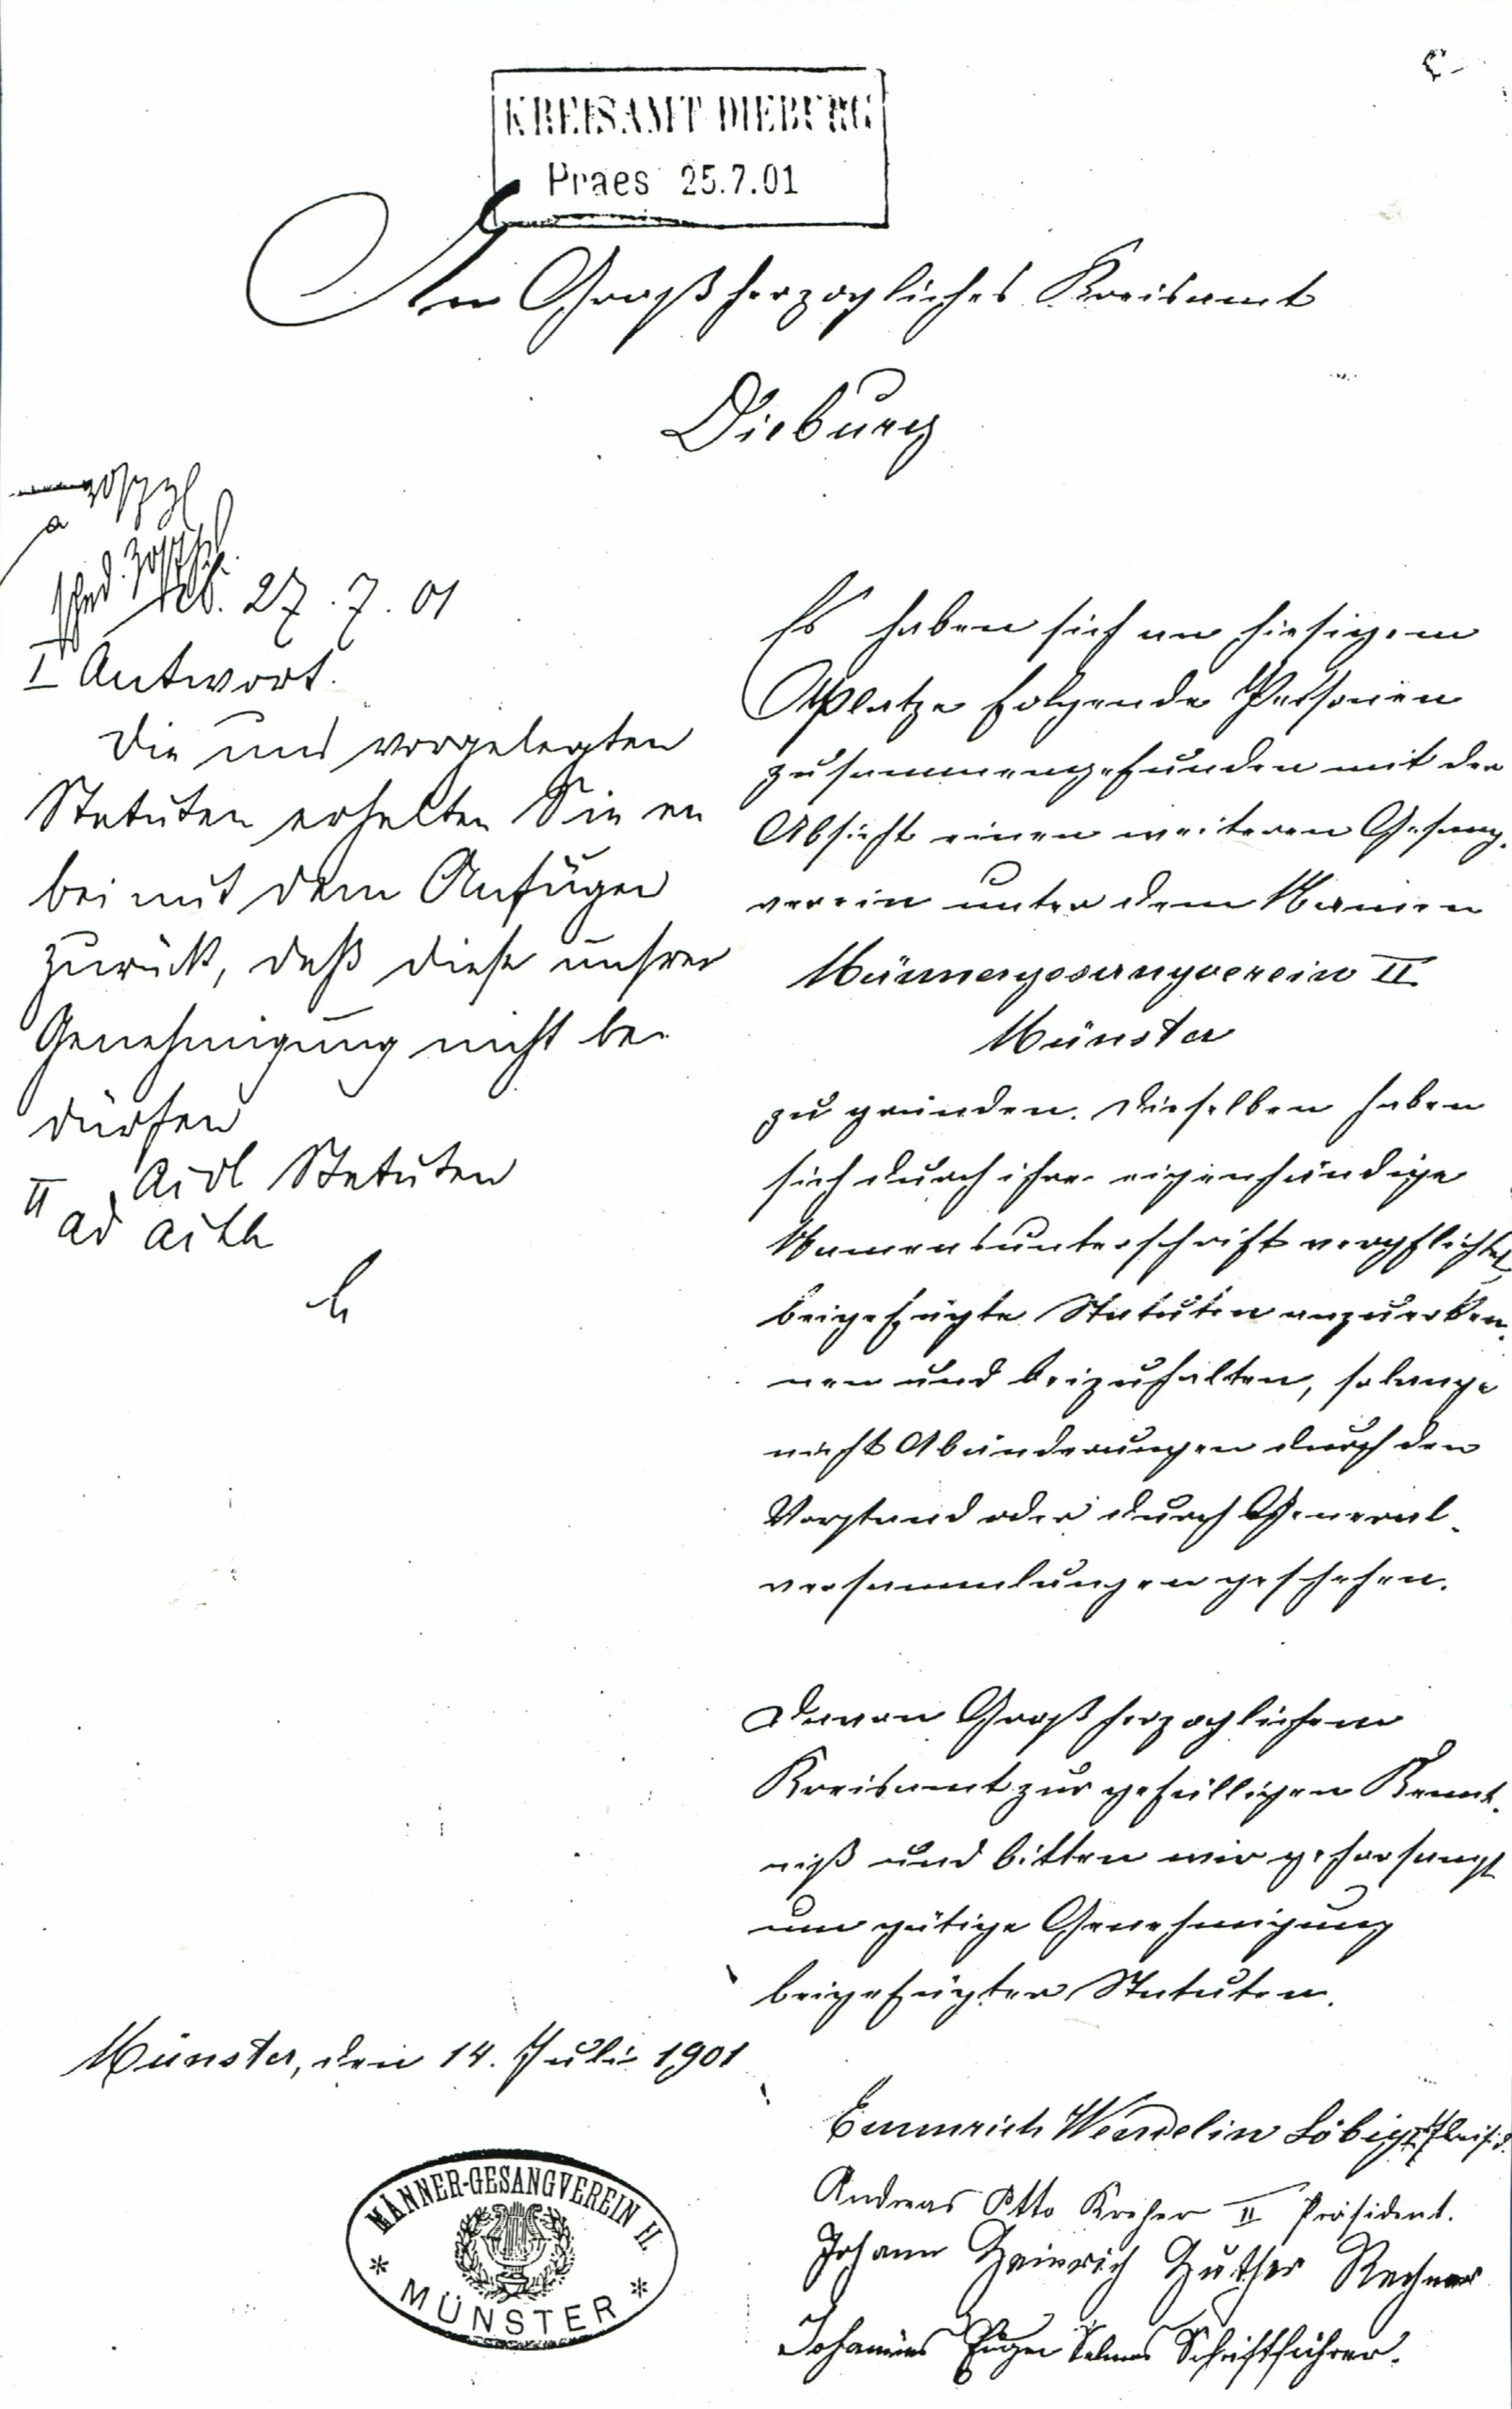 KREISAMT DIEBURG
Praes 25.7.01
An Großherzogliches Kreisamt
Dieburg
27.7.01
I Antwort.
Die uns vorgelegten
Statuten erhalten Sie an
bei mit dem Anfügen
zurück, daß diese unsrer
Genehmigung nicht be-
dürfen
II Statuten
ad acta
Es haben sich am hiesigem
Platze folgende Personen
zusammengefunden mit der
Absicht einen weiteren Gesang-
verein unter dem Namen
Männergesangverein II
Münster
zu gründen. Dieselben haben
sich durch ihre eigenhändige
Namensunterschrift verpflichtet,
beigefügte Statuten anzuerken-
nen und beizuhalten, solange
nicht Abänderungen durch den
Vorstand oder durch General-
versammlungen geschehen.
Davon Großherzoglichem
Kreisamt zur gefälligen Kennt-
niß und bitten wir gehorsamst
um gütige Genehmigung
beigefügter Statuten.
Münster, den 14. Juli 1901
Emmrich Wendelin Löbig I Präsid.
Andreas Otto Kreher II Präsident.
Johann Heinrich Huther Rechner
Johannes Eugen Schriftführer.
MÄNNER-GESANGVEREIN II.
* MÜNSTER *